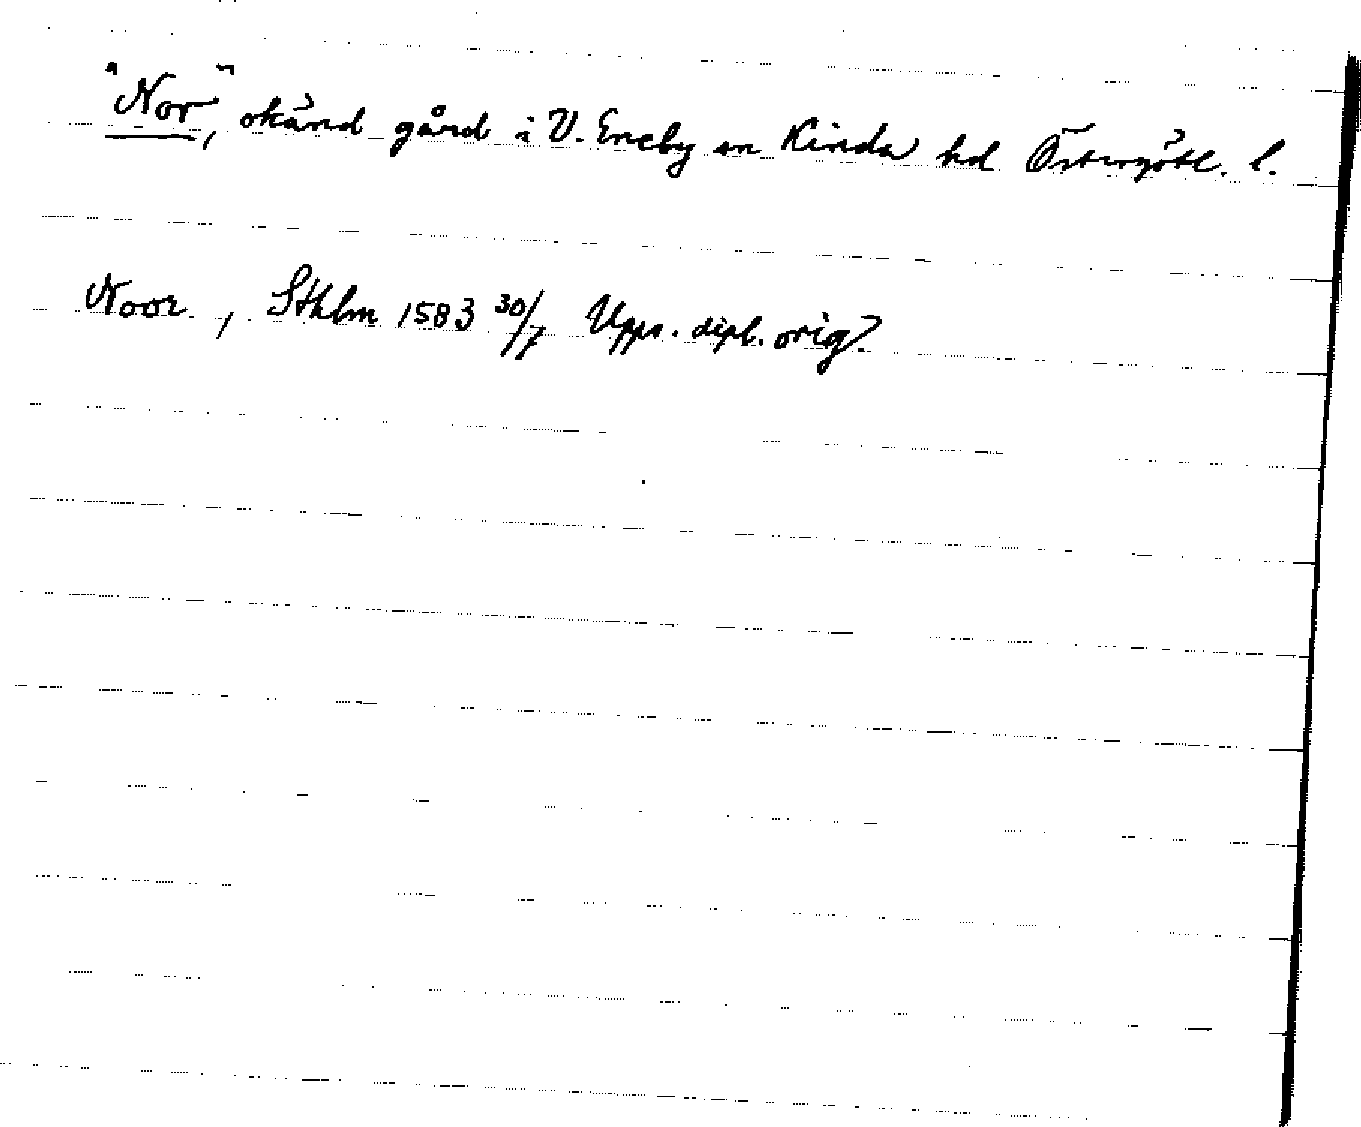 "Nor", okänd gård i V. Eneby sn Kinda hd Östergötl. l.
Noor, Sthlm 1583 30/7 Upps. dipl. orig.